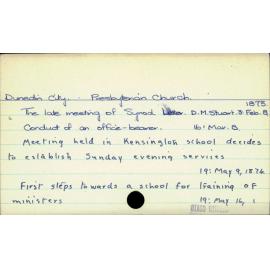 Dunedin City. Presbyterian Church.
1875.
" The late meeting of Synod D.M. Stuart. 3: Feb. 8
Conduct of an office-bearer. 16: Mar. 8.
Meeting held in Kensington school decides
to establish Sunday evening services
19: May 9, 1876
First steps towards a school for training of
ministers 19: May 16, 1